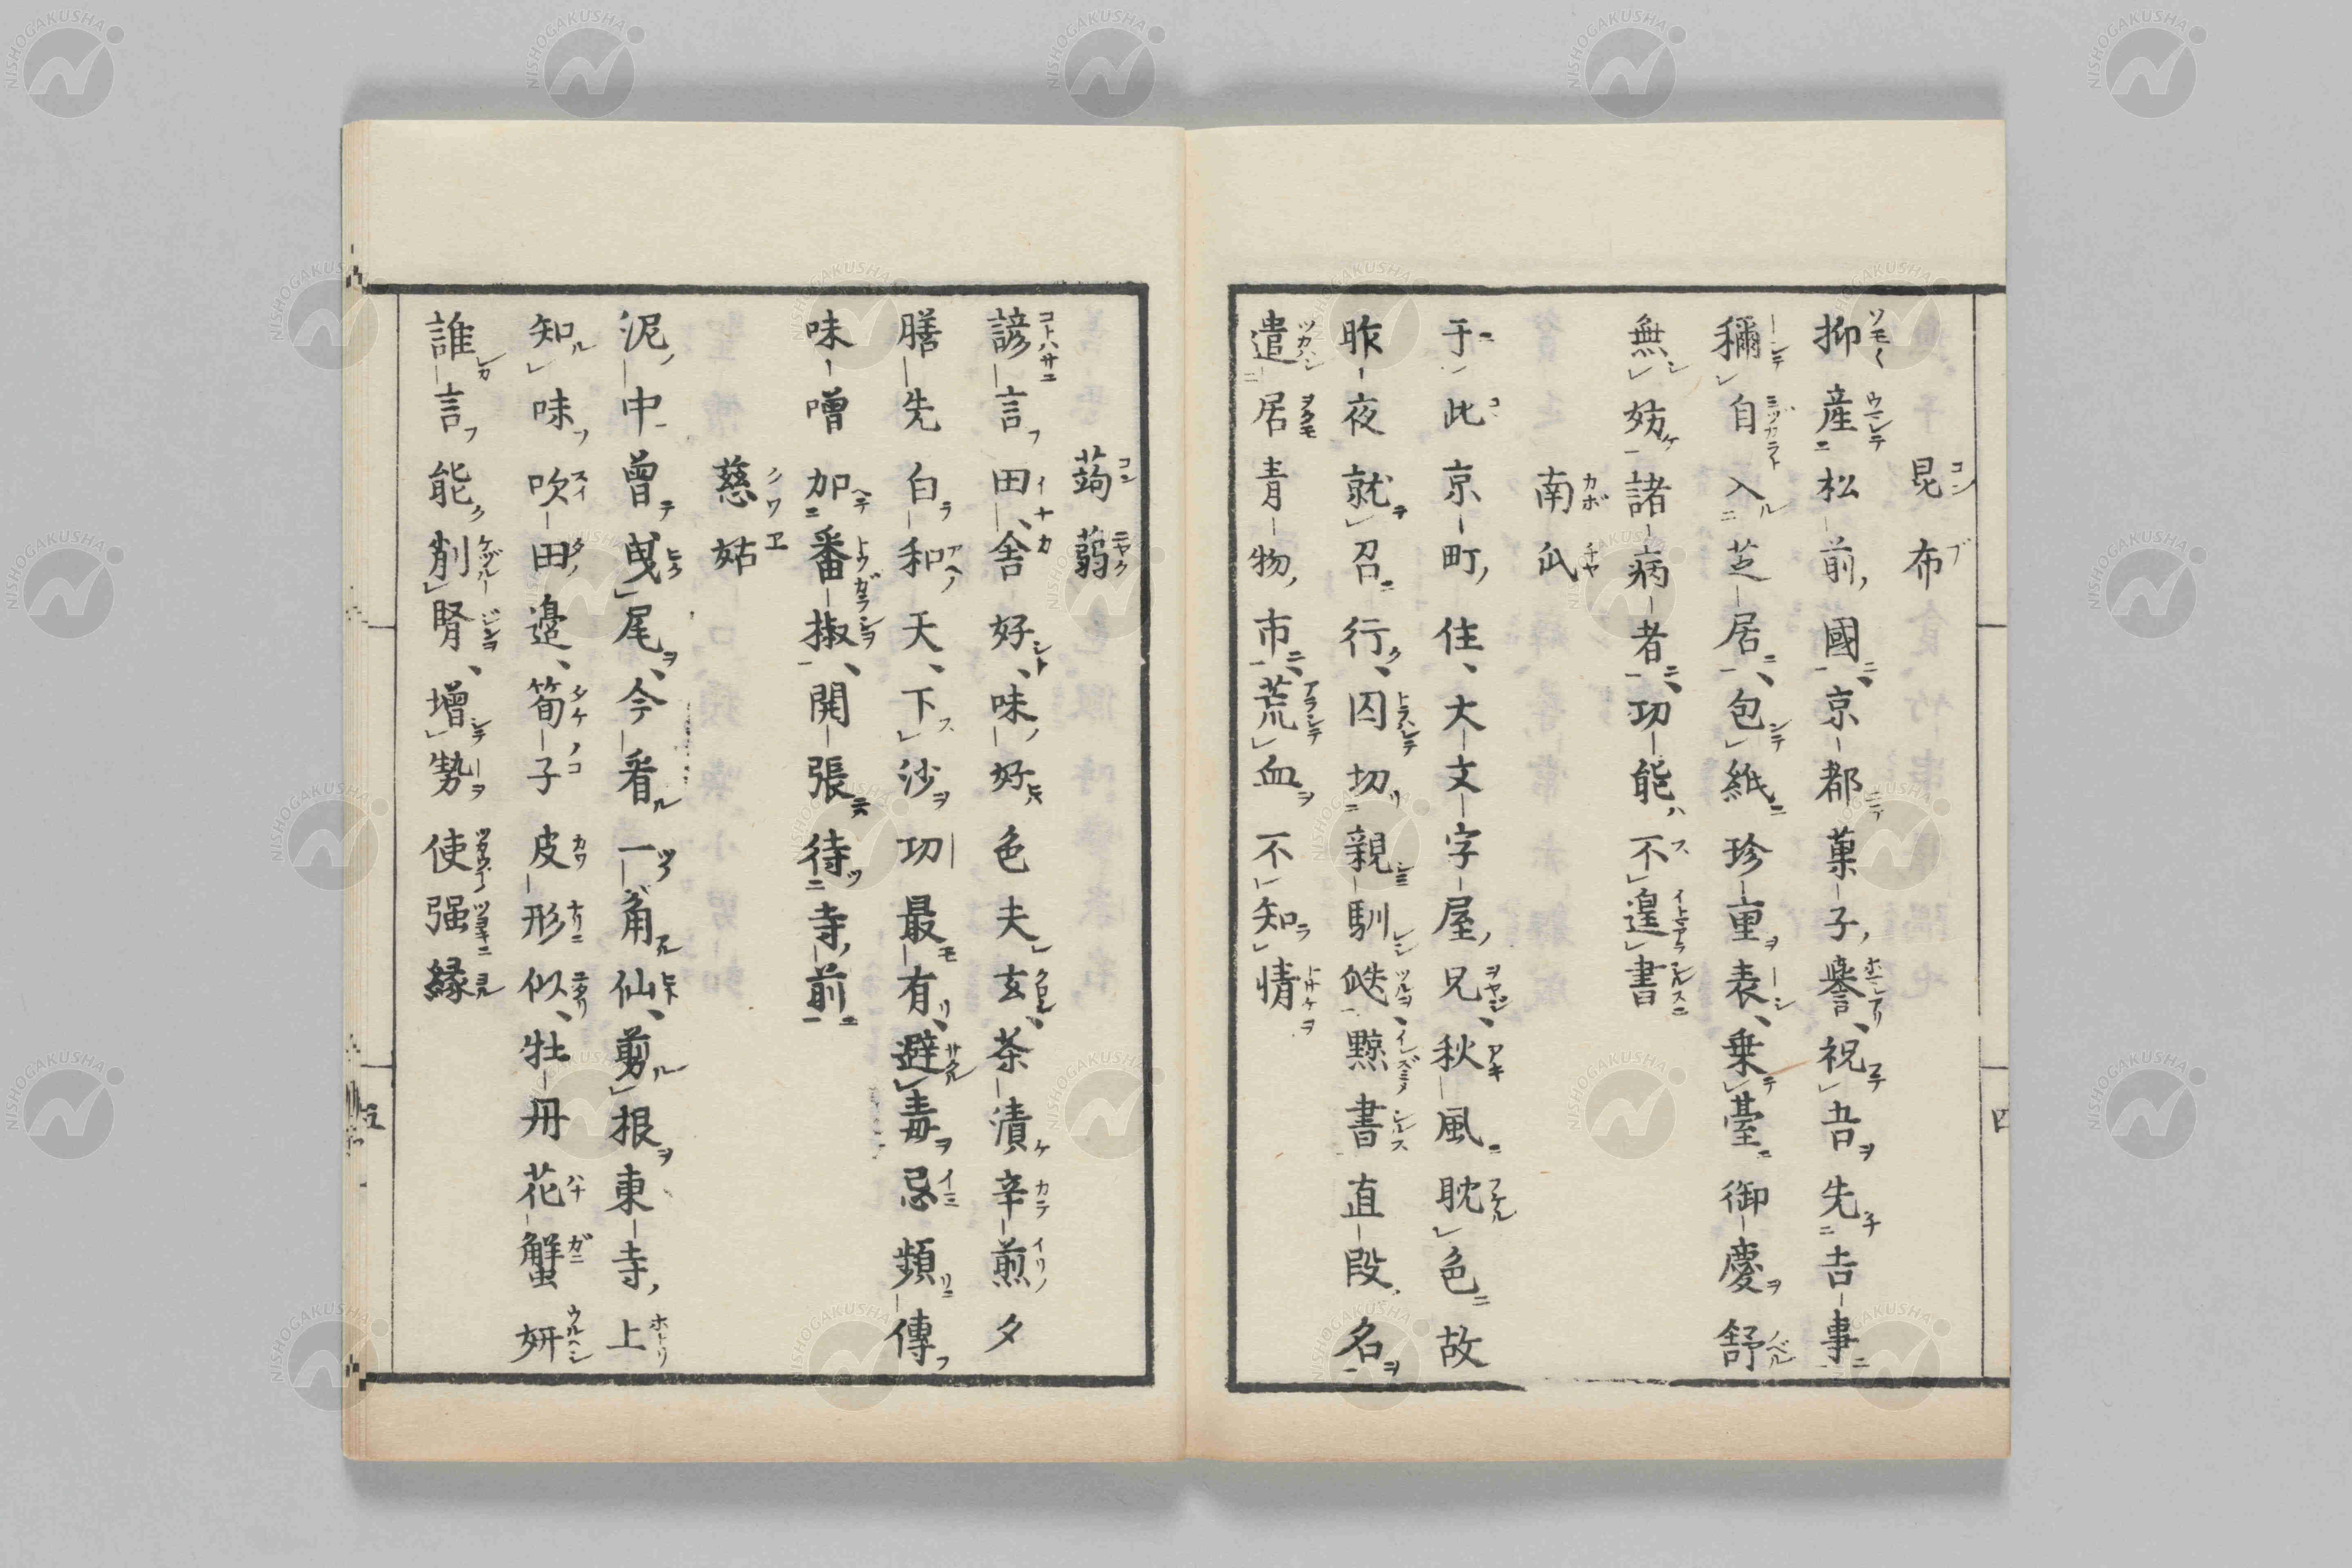 昆布
抑産松前國京都菓子譽祝吾先吉事
稱自入芝居包紙珍重表乗臺御慶舒
無妨諸病者功能不遑書
南瓜
于此京町住大文字屋兄秋風耽色故
昨夜就召行囚切親馴 黥書直段名
遣居青物市荒血不知情
四
蒟蒻
諺言田舎好味好色夫玄茶漬辛煎夕
膳先白和天下沙功最有避毒忌頻傳
味噌加番椒開張待寺前
慈姑
泥中曽曳尾今看一角仙剪根東寺上
知味吹田邉筍子皮形似牡丹花蟹妍
誰言能削腎増勢使强縁
五
NISHOGAKUSHA